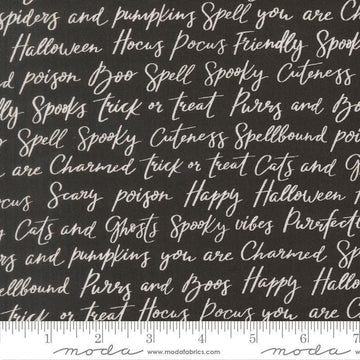 spiders and pumpkins Spell you are C
Halloween Hocus Pocus Friendly Spook
d poison Boo Spell Spooky Cuteness
dly Spooks trick or treat Purrs and B
y Spell Spooky Cuteness Spellbound poi
are Charmed trick or treat Cats and
ocus Scary poison Happy Halloween
y Cats and Ghosts Spooky vibes Purrfect
rs and pumpkins you are Charmed Sp
ellbound Purrs and Boos Happy Hallow
trick or treat Hocus Pocus you are C
1 2 3 4 5 6 7
moda www.modafabrics.com moda